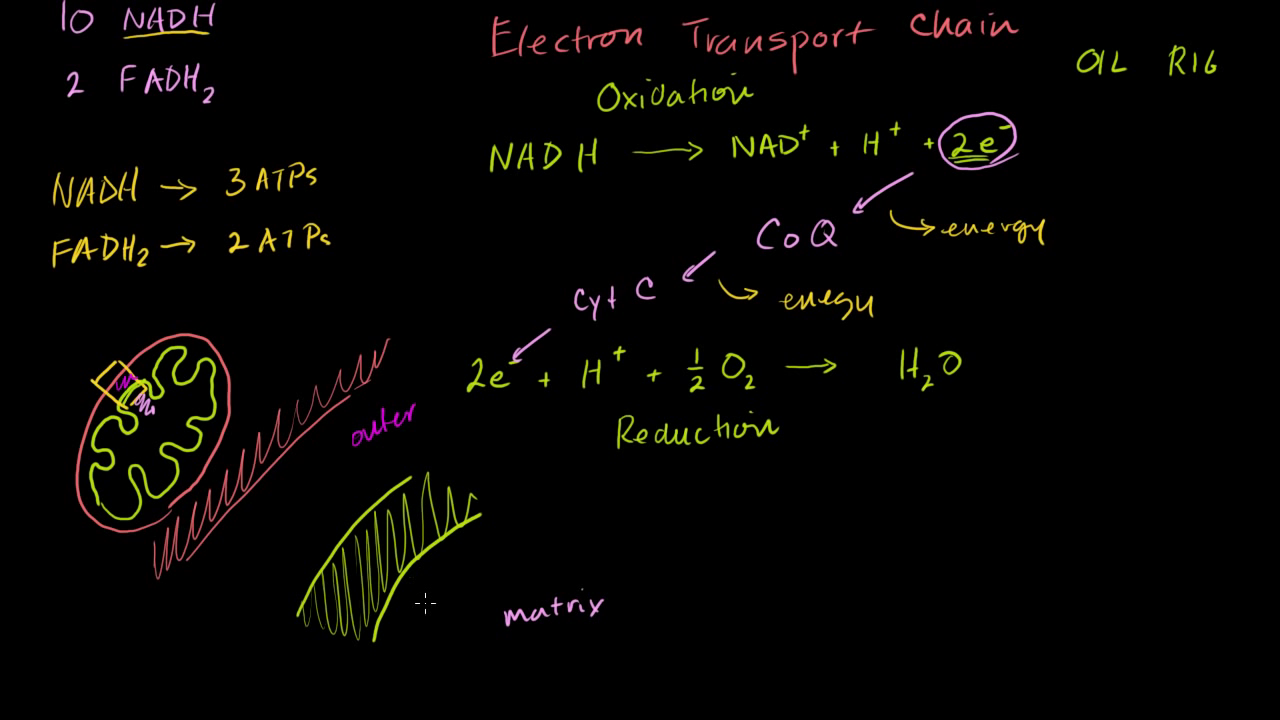 10 NADH
2 FADH₂
NADH → 3 ATPs
FADH₂ → 2 ATPs
Electron Transport Chain
OIL RIG
Oxidation
NADH → NAD⁺ + H⁺ + 2e⁻
CoQ
energy
Cyt C
energy
2e⁻ + H⁺ + ½ O₂ → H₂O
Reduction
outer
matrix